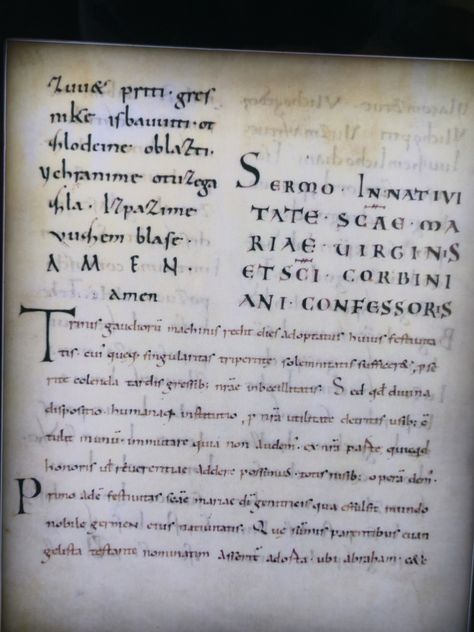 Zuu& priti · gres
nike isbauuiti · ot
zlodeine oblazti.
Vchranime otuzega
zla. Izpazime
vuzhem blase ·
A M E N ·
amen
SERMO · IN NATIVI
TATE · SC̄AE · MA
RIAE · UIRGINIS
ET SC̄I · CORBINI
ANI · CONFESSORIS
Trinus gaudiorū machinis redit dies adoptatus huius festiuita
tis. cui' queq; singularitas tripertite solemnitatis sufficer&, p se
rite colenda tardis gressib; nr̄ae inbecillitatis. Sed qd̄ diuina
dispositio humanaq; institutio, p nr̄a utilitate decretis usib; c̄
tulit immutare quia non audem'. ex nr̄a parte quicqd
honoris ul̄ reuerentiae addere possumus totis nisib; operā dem'.
Primo adē festiuitas sc̄ae mariae dī genitricis qua effulsit mundo
nobile germen eius natiuitatis. Que sūmis parentibus euan
gelista testante nominatim asserit' adorta. ubi abraham.